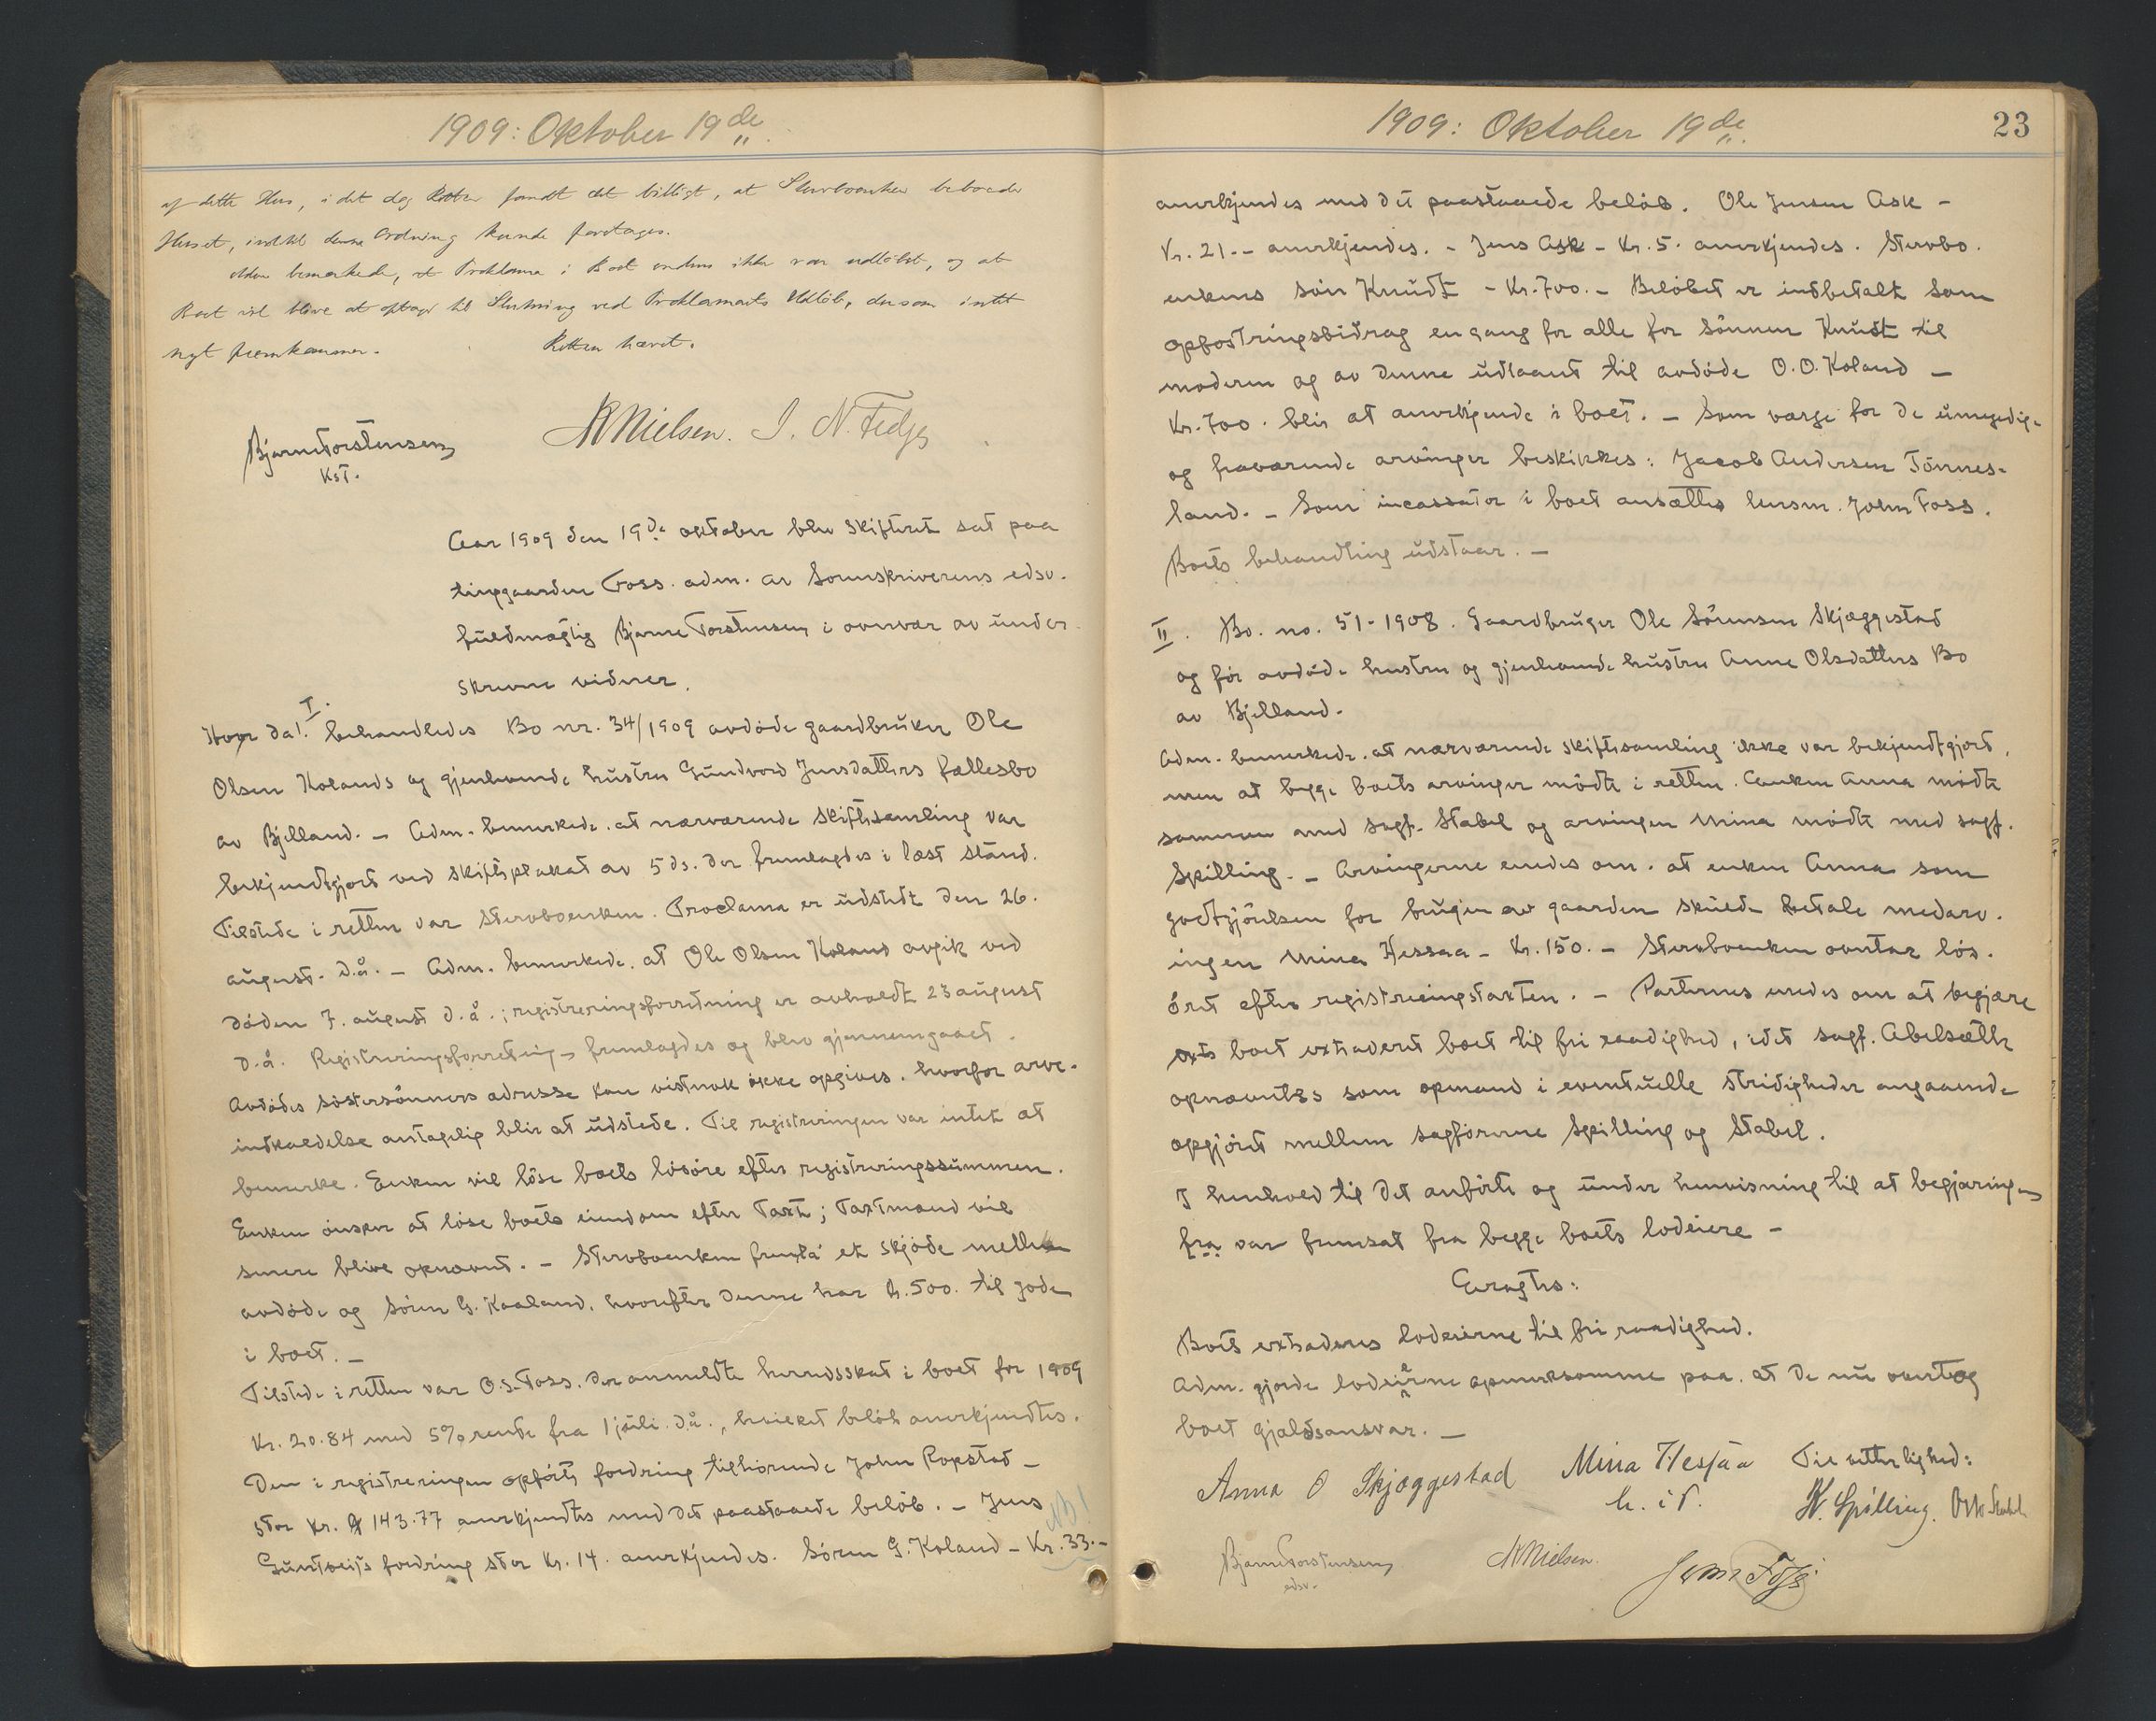 1909: Oktober 19de
af dette Hus, i det dog Retten fandt det billigt, at Stervboenken beboede
Huset, indtil denne Ordning kunde foretages.
Adm bemærkede, at Proklama i Boet endnu ikke var udløbet, og at
Boet vil blive at optage til Slutning ved Proklamaets Udløb, dersom intet
nyt fremkommer. Retten hævet.
Bjarne Torstensen NNielsen.
Kst.
Aar 1909 den 19de oktober blev skifteret sat paa
tinggaarden Foss. adm. av Sorenskriverens edsv.
fuldmægtig Bjarne Torstensen i overvær av under
skrevne vidner.
I.
Hvor da! behandledes Bo nr. 34/1909 avdøde gaardbruker Ole
Olsen Kolands og gjenlevende hustru Gundvord Jensdatters fællesbo
av Bjelland. – Adm. bemerkede, at nærværende skiftesamling var
bekjendtgjort ved skifteplakat av 5 ds. der fremlagdes i læst stand.
Tilstede i retten var stervboenken. Proclama er udstedt den 26.
august. d.å. – Adm. bemerkede, at Ole Olsen Koland avgik ved
døden 7. august d.å.; registreringsforretning er avholdt 23 august
d.å. Registreringsforretning fremlagdes og blev gjennemgaaet.
Avdødes søstersønners adresse kan vistnok ikke opgives, hvorfor arve-
indkaldelse antagelig blir at udstede. Til registreringen var intet at
bemerke. Enken vil løse boets løsøre efter registreringssummen.
Enken ønsker at løse boets eiendom efter Taxt; Taxtmænd vil
senere blive opnævnt. – Stervboenken fremla' et skjøde mellem
avdøde og Søren G. Kaaland, hvorefter denne har kr. 500. til gode
i boet. –
Tilstede i retten var O.S. Foss. der anmeldte herredsskat i boet for 1909
Kr. 20.84 med 5% rente fra 1 juli. d.å., hvilket beløb anerkjendtes.
Den i registreringen opførte fordring tilhørende John Ropstad –
stor kr. 143.77 anerkjendtes med det paastaaede beløb. – Jens
NB!
fordring stor Kr. 14. anerkjendes. Søren G. Koland – Kr. 33.–
1909: Oktober 19de
23
anerkjendes med det paastaaede beløb. Ole Jensen Ask –
Kr. 21.– anerkjendes. – Jens Ask – Kr. 5. anerkjendes. Stervbo.
enkens søn Knudt – Kr. 700. – Beløbet er indbetalt som
opfostringsbidrag en gang for alle for sønnen Knudt til
moderen og av denne udlaant til avdøde O.O. Koland –
Kr. 700. blir at anerkjende i boet. – Som værge for de umyndige
og fraværende arvinger beskikkes: Jacob Andersen Tønnes-
land. – Som incassator i boet ansættes lensm. John Foss.
Boets behandling udstaar. –
II. Bo. no. 51-1908. Gaardbruger Ole Sørensen Skjæggestad
og før avdøde hustru og gjenlevende hustru Anne Olsdatters Bo
av Bjelland.
Adm. bemerkede, at nærværende skiftesamling ikke var bekjendtgjort,
men at begge boets arvinger mødte i retten. Enken Anna mødte
sammen med sagf. Stabel og arvingen Mina mødte med sagf.
Spilling. – Arvingerne enedes om, at enken Anna som
godtgjørelsen for brugen av gaarden skulde betale medarv.
ingen Mina Hessaa – Kr. 150. – Stervboenken overtar løs.
øret efter registreringstaxten. – Parternes enedes om at begjære
boet extraderet boet til fri raadighed, idet sagf. Abelsæth
opnævntes som opmand i eventuelle stridigheder angaaende
opgjøret mellem sagførerne Spilling og Stabel.
I henhold til det anførte og under henvisning til at begjæringen
fra var fremsat fra begge boets lodeiere –
Eragtes:
Boets extraderes lodeierne til fri raadighed.
Adm. gjorde lodeierne opmerksomme paa, at de nu overtog
boet gjældsansvar. –
Anna O Skjæggestad Mina Hesjaa Til vitterlighed:
h. i P. W. Spilling.
Bjarne Torstensen NNielsen.
edsv.